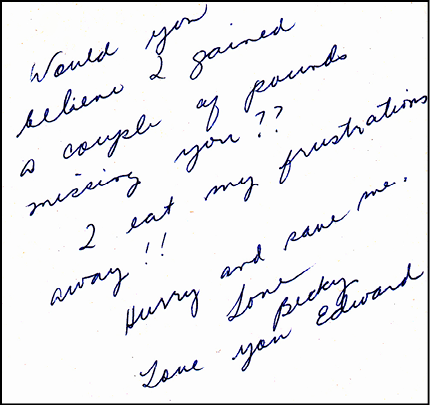 Would you
believe I gained
a couple of pounds
missing you??
I eat my frustrations
away!!
Hurry and save me.
Love
Becky
Love you Edward